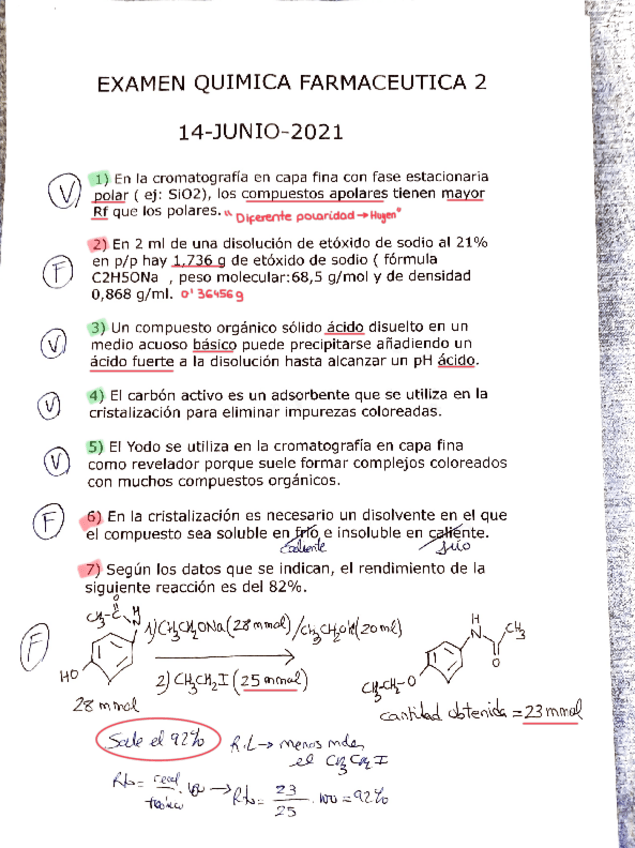 EXAMEN QUIMICA FARMACEUTICA 2
14-JUNIO-2021
V 1) En la cromatografía en capa fina con fase estacionaria
polar ( ej: SiO2), los compuestos apolares tienen mayor
Rf que los polares. "Diferente polaridad → Huyen"
2) En 2 ml de una disolución de etóxido de sodio al 21%
F en p/p hay 1,736 g de etóxido de sodio ( fórmula
C2H5ONa , peso molecular:68,5 g/mol y de densidad
0,868 g/ml. 0'36456g
3) Un compuesto orgánico sólido ácido disuelto en un
V medio acuoso básico puede precipitarse añadiendo un
ácido fuerte a la disolución hasta alcanzar un pH ácido.
4) El carbón activo es un adsorbente que se utiliza en la
V cristalización para eliminar impurezas coloreadas.
5) El Yodo se utiliza en la cromatografía en capa fina
V como revelador porque suele formar complejos coloreados
con muchos compuestos orgánicos.
F 6) En la cristalización es necesario un disolvente en el que
el compuesto sea soluble en frío e insoluble en caliente.
caliente frío
7) Según los datos que se indican, el rendimiento de la
siguiente reacción es del 82%.
F
O
CH3-C N H
1) CH3CH2ONa (28 mmol) / CH3CH2OH (20 ml)
H
N CH3
O
HO
2) CH3CH2I (25 mmol)
CH3-CH2-O
28 mmol
cantidad obtenida = 23 mmol
Sale el 92% R.L → menos moles
el CH3CH2I
Rto = real/teórico . 100 → Rto = 23/25 . 100 = 92%